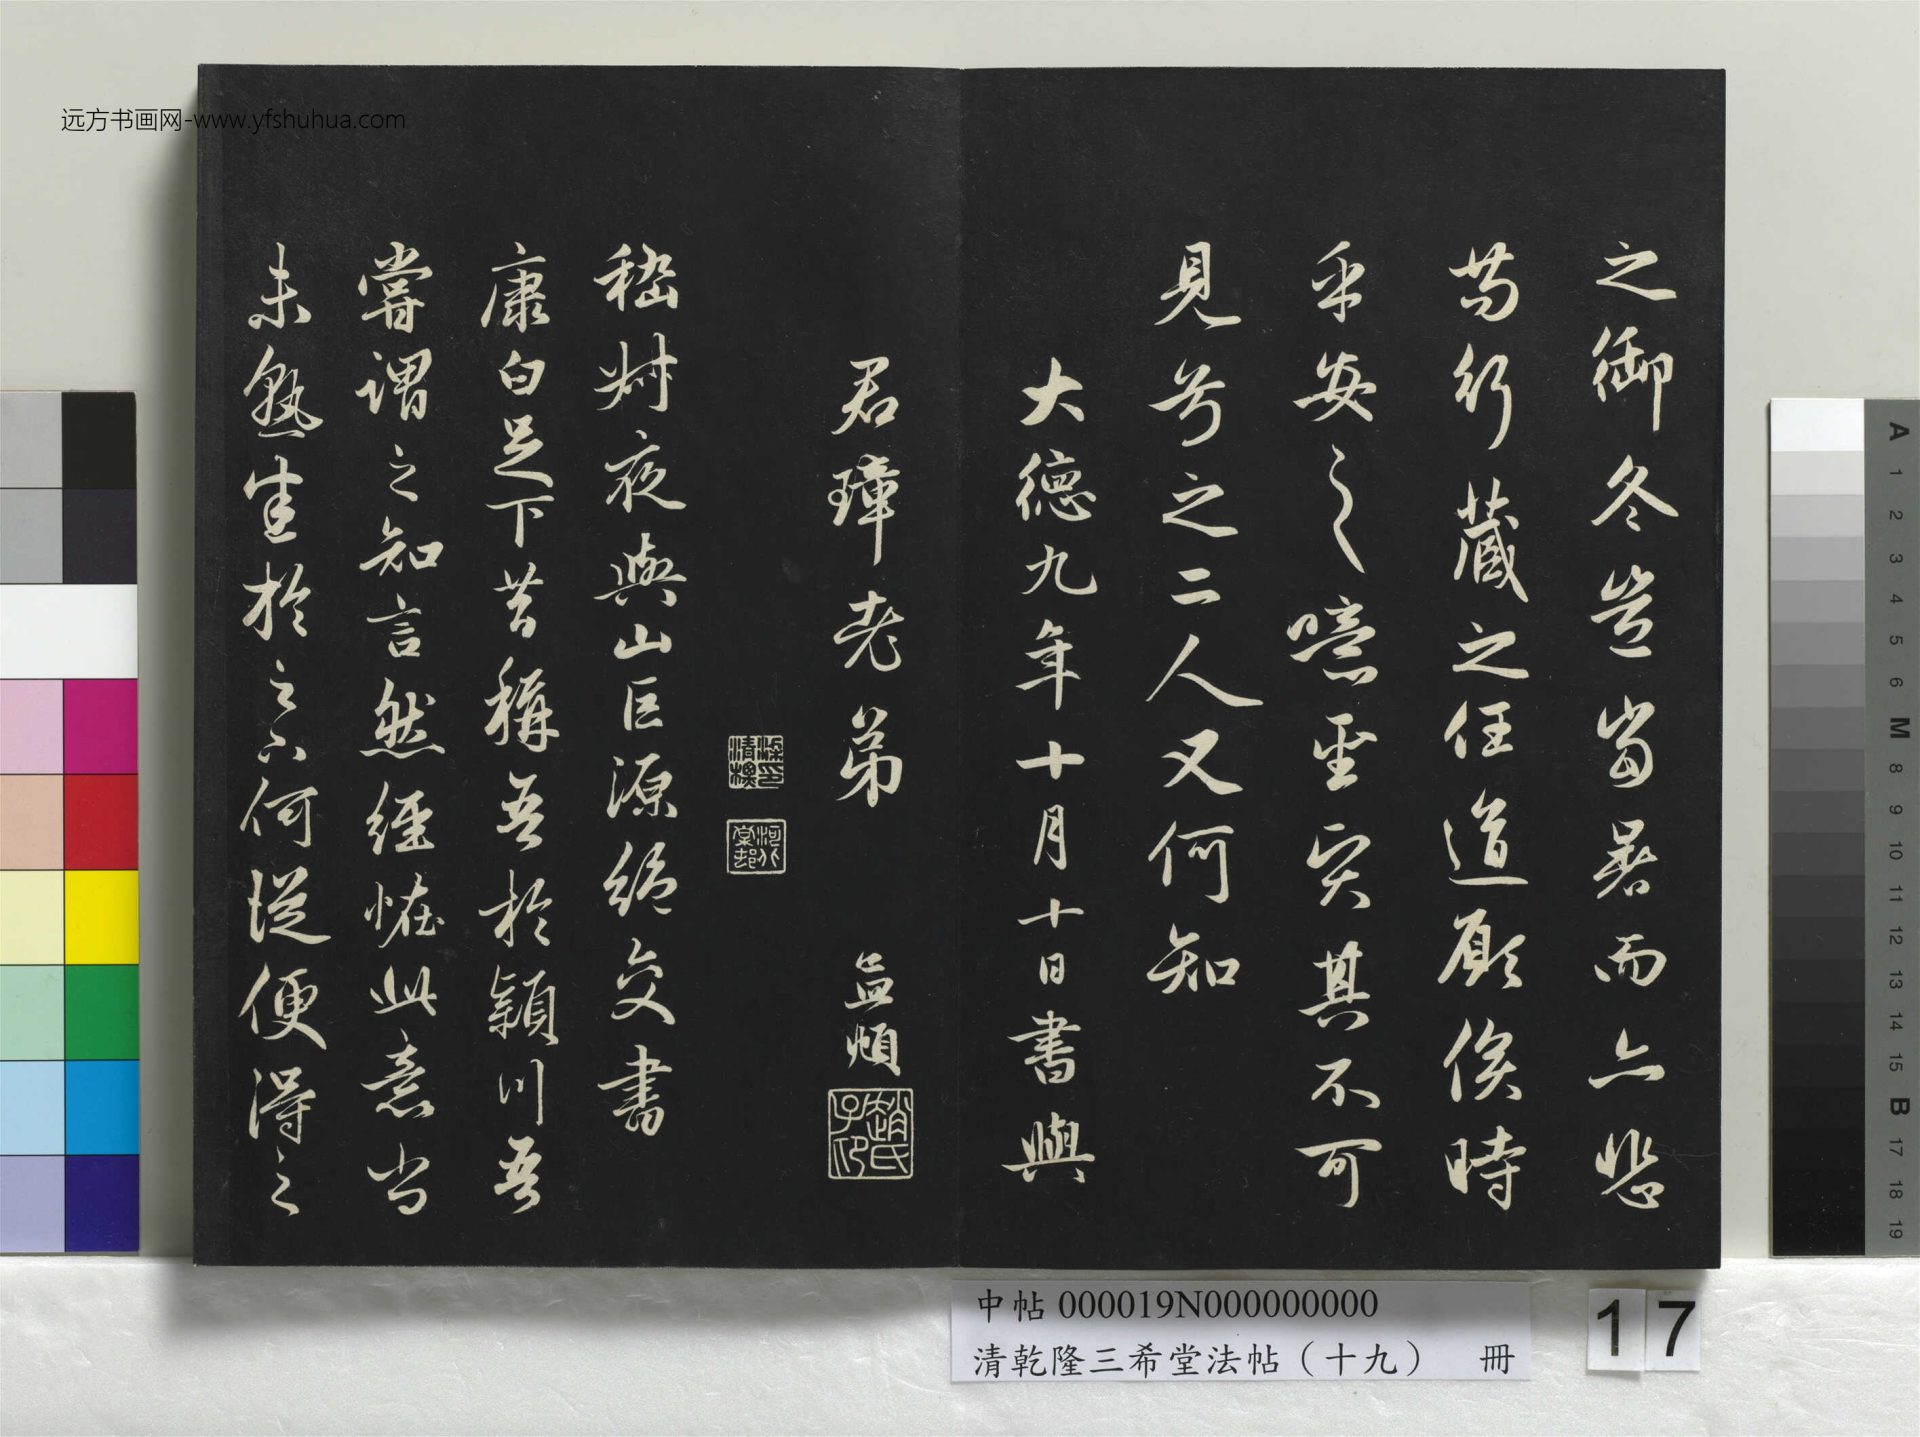 之御冬豈當暑而亦悲
苟行藏之任道顧俟時
乎安之噫聖賢其不可
見兮之二人又何知
大德九年十月十日書與
君璋老弟
孟頫
趙氏子昂
嵇叔夜與山巨源絕交書
康白足下昔稱吾於潁川吾
嘗謂之知言然經怪此意尚
未熟悉於
足下何從便得之
远方书画网-www.yfshuhua.com
中帖 000019N000000000
清乾隆三希堂法帖（十九） 冊
17
A
1
2
3
4
5
6
M
8
9
10
11
12
13
14
15
B
17
18
19